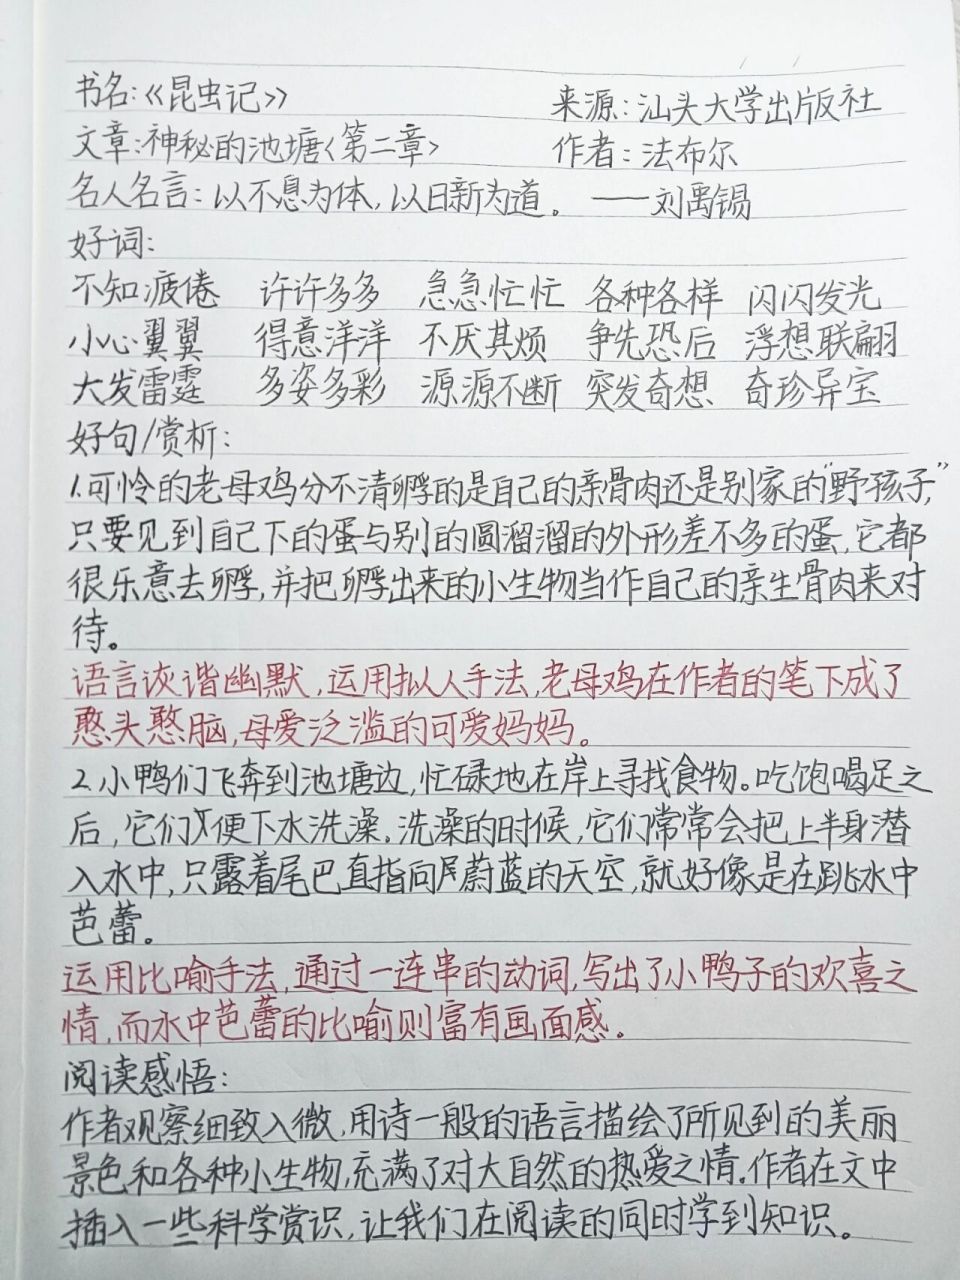 书名:《昆虫记》 来源:汕头大学出版社
文章:神秘的池塘<第二章> 作者:法布尔
名人名言:以不息为体,以日新为道。——刘禹锡
好词:
不知疲倦 许许多多 急急忙忙 各种各样 闪闪发光
小心翼翼 得意洋洋 不厌其烦 争先恐后 浮想联翩
大发雷霆 多姿多彩 源源不断 突发奇想 奇珍异宝
好句/赏析:
1.可怜的老母鸡分不清孵的是自己的亲骨肉还是别家的"野孩子",
只要见到自己下的蛋与别的圆溜溜的外形差不多的蛋,它都
很乐意去孵,并把孵出来的小生物当作自己的亲生骨肉来对
待。
语言诙谐幽默,运用拟人手法,老母鸡在作者的笔下成了
憨头憨脑,母爱泛滥的可爱妈妈。
2.小鸭们飞奔到池塘边,忙碌地在岸上寻找食物。吃饱喝足之
后,它们便下水洗澡。洗澡的时候,它们常常会把上半身潜
入水中,只露着尾巴直指向蔚蓝的天空,就好像是在跳水中
芭蕾。
运用比喻手法,通过一连串的动词,写出了小鸭子的欢喜之
情,而水中芭蕾的比喻则富有画面感。
阅读感悟:
作者观察细致入微,用诗一般的语言描绘了所见到的美丽
景色和各种小生物,充满了对大自然的热爱之情.作者在文中
插入一些科学赏识,让我们在阅读的同时学到知识。